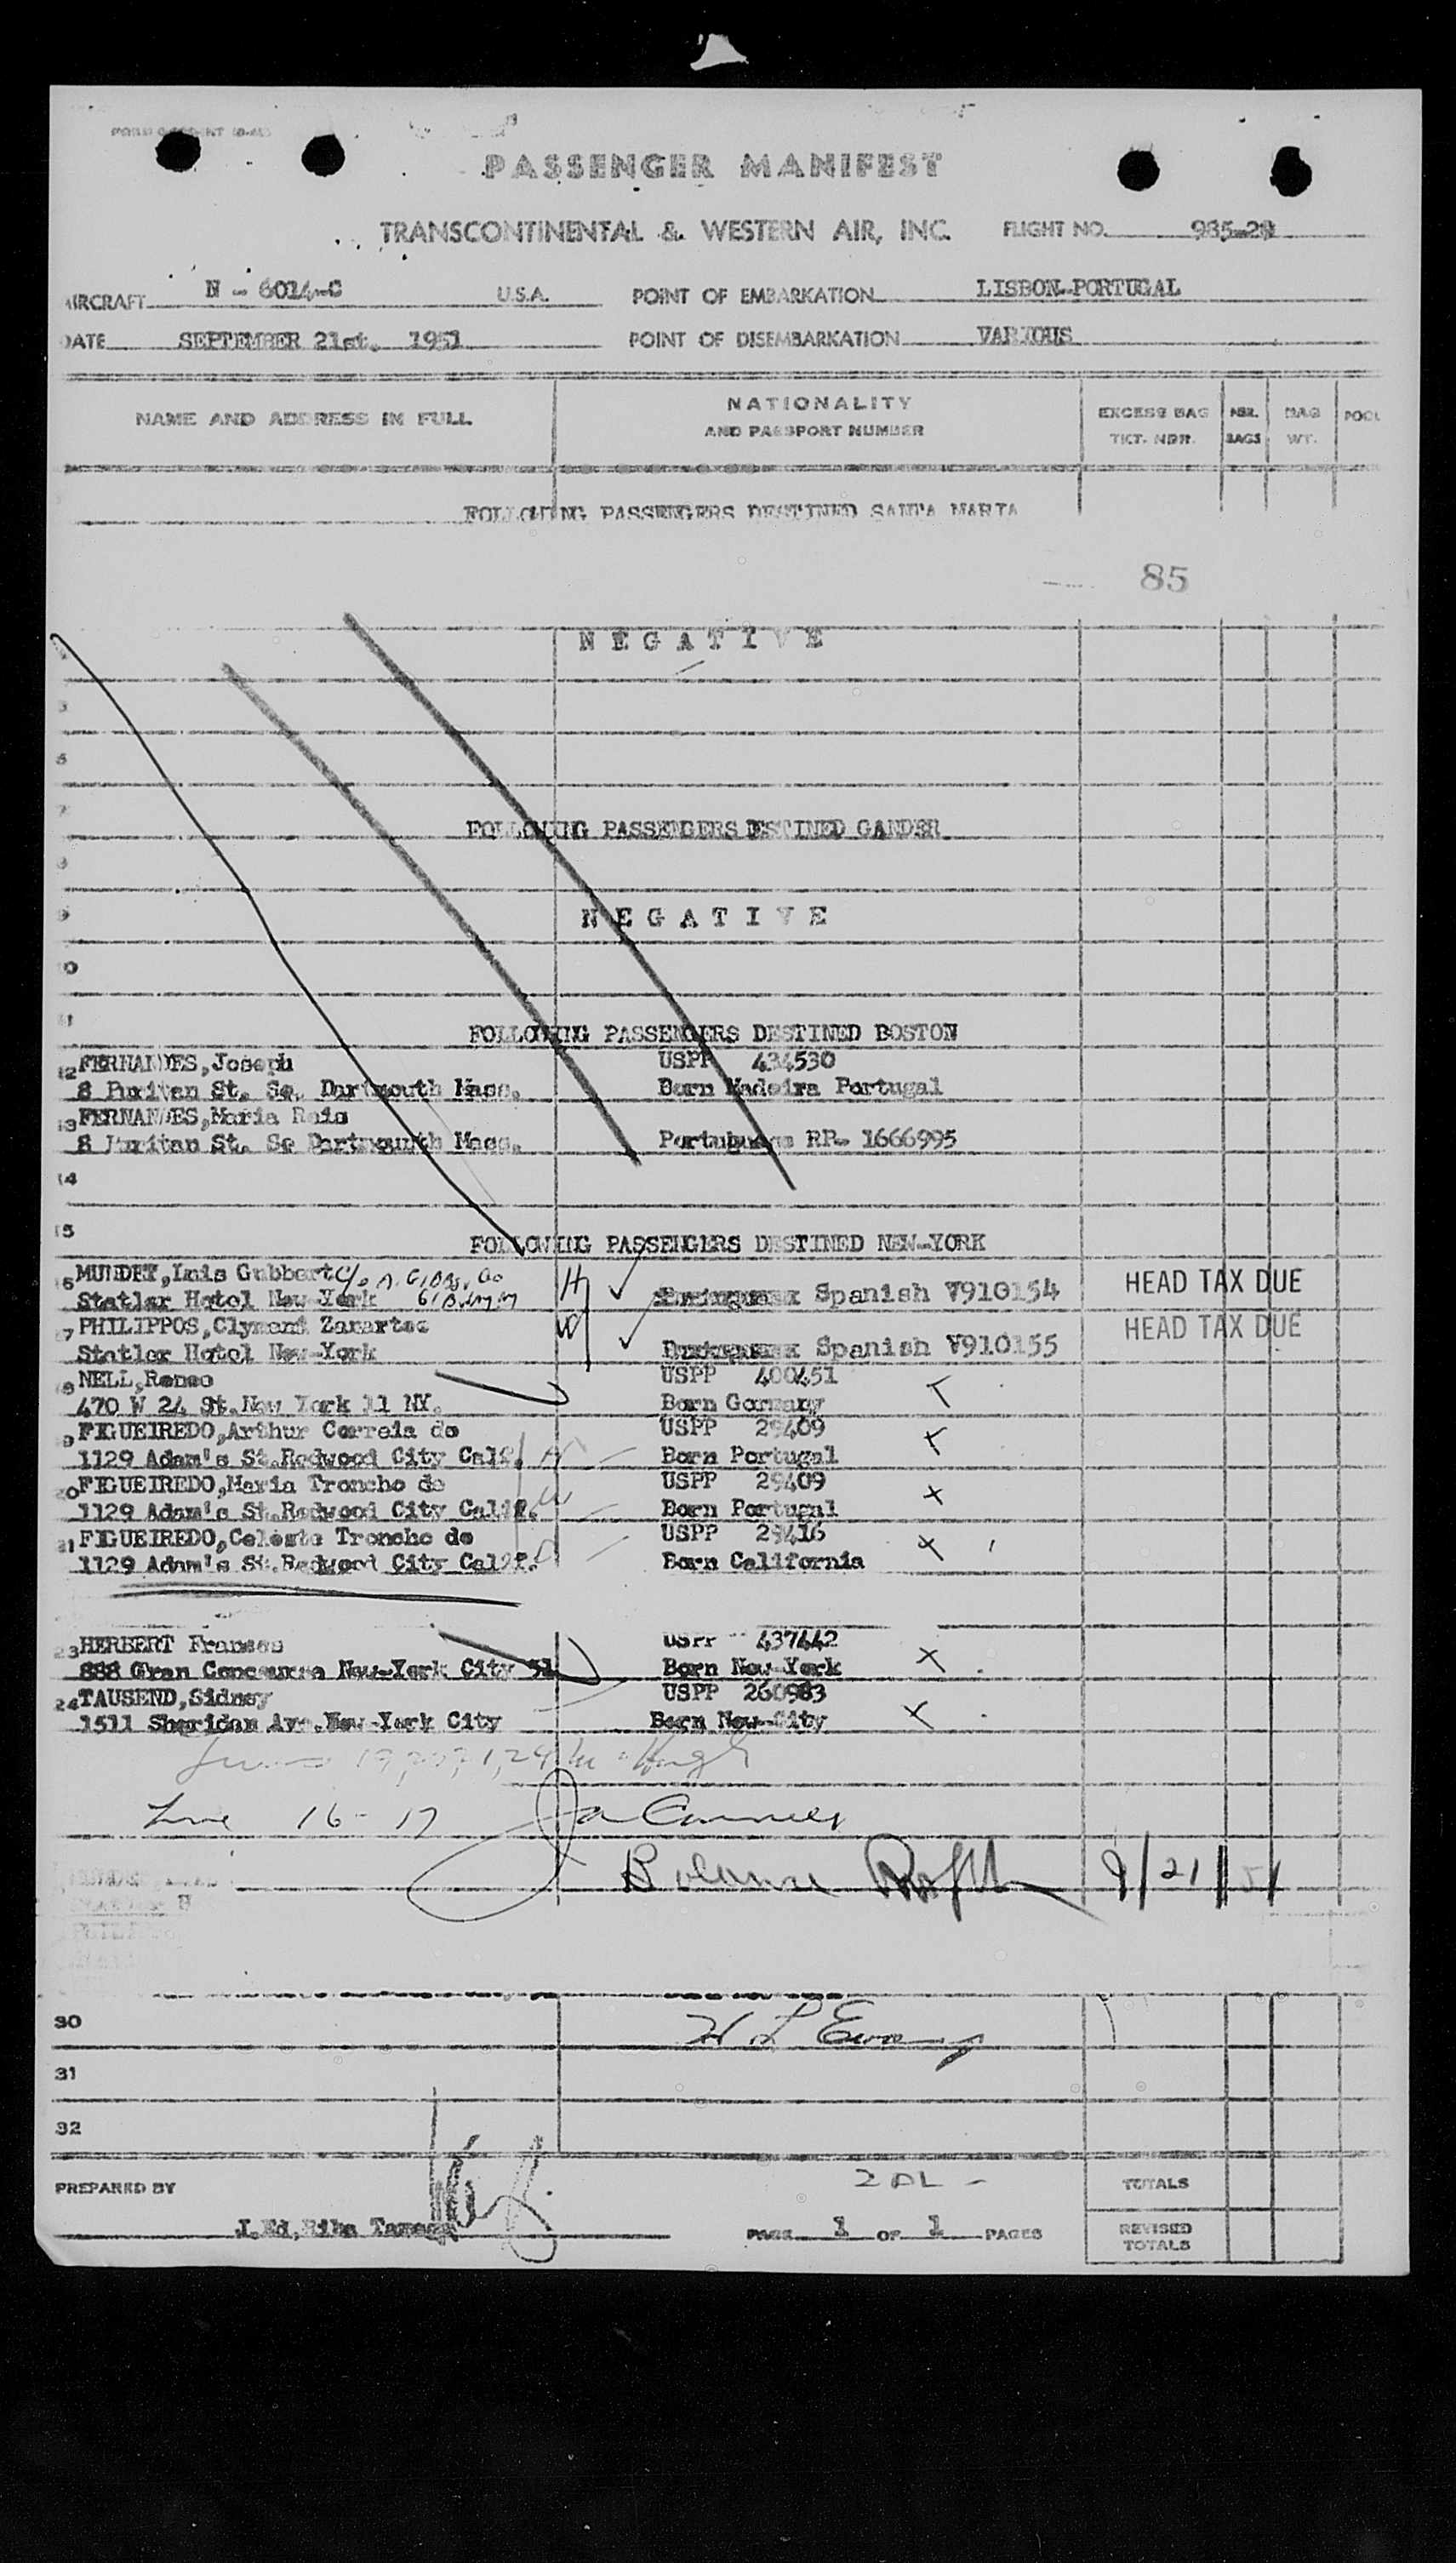 PASSENGER MANIFEST
TRANSCONTINENTAL & WESTERN AIR, INC. FLIGHT NO. 985-29
AIRCRAFT N - 6014-C U.S.A. POINT OF EMBARKATION LISBON-PORTUGAL
DATE SEPTEMBER 21st. 1951 POINT OF DISEMBARKATION VARIOUS
NAME AND ADDRESS IN FULL NATIONALITY AND PASSPORT NUMBER EXCESS BAG TICT. NBR. NBR. BAGS BAG WT.
FOLLOWING PASSENGERS DESTINED SANTA MARIA
85
N E G A T I V E
3
5
7
FOLLOWING PASSENGERS DESTINED GANDER
9
N E G A T I V E
10
11
FOLLOWING PASSENGERS DESTINED BOSTON
12 FERNANDES, Joseph USPP 434530
8 Puritan St. So. Dartmouth Mass. Born Madeira Portugal
13 FERNANDES, Maria Reis
8 Puritan St. So Dartmouth Mass. Portuguese RP- 1666995
14
15
FOLLOWING PASSENGERS DESTINED NEW-YORK
16 MUNDET, Luis Gubbert c/o H
Statler Hotel New-York Spanish V910154 HEAD TAX DUE
17 PHILIPPOS, Clyment Zanartec W
Statler Hotel New-York Spanish V910155 HEAD TAX DUE
18 NELL, Renee USPP 400451
470 W 24 St. New York 11 NY. Born Germany X
19 FIGUEIREDO, Arthur Correia de USPP 29409
1129 Adam's St. Redwood City Calif. H Born Portugal X
20 FIGUEIREDO, Maria Troncho de USPP 29409
1129 Adam's St. Redwood City Calif. W Born Portugal X
21 FIGUEIREDO, Celeste Troncho de USPP 29416
1129 Adam's St. Redwood City Calif. D Born California X
23 HERBERT Frances USPP 437442
888 Gran Concourse New-York City 51 Born New-York X
24 TAUSEND, Sidney USPP 260983
1511 Sheridan Ave. New-York City Born New-City X
Line 16 - 17
Balance 9/21/51
30
31
32
PREPARED BY 2 AL - TOTALS
J. Ed, PAGE 1 OF 1 PAGES REVISED TOTALS